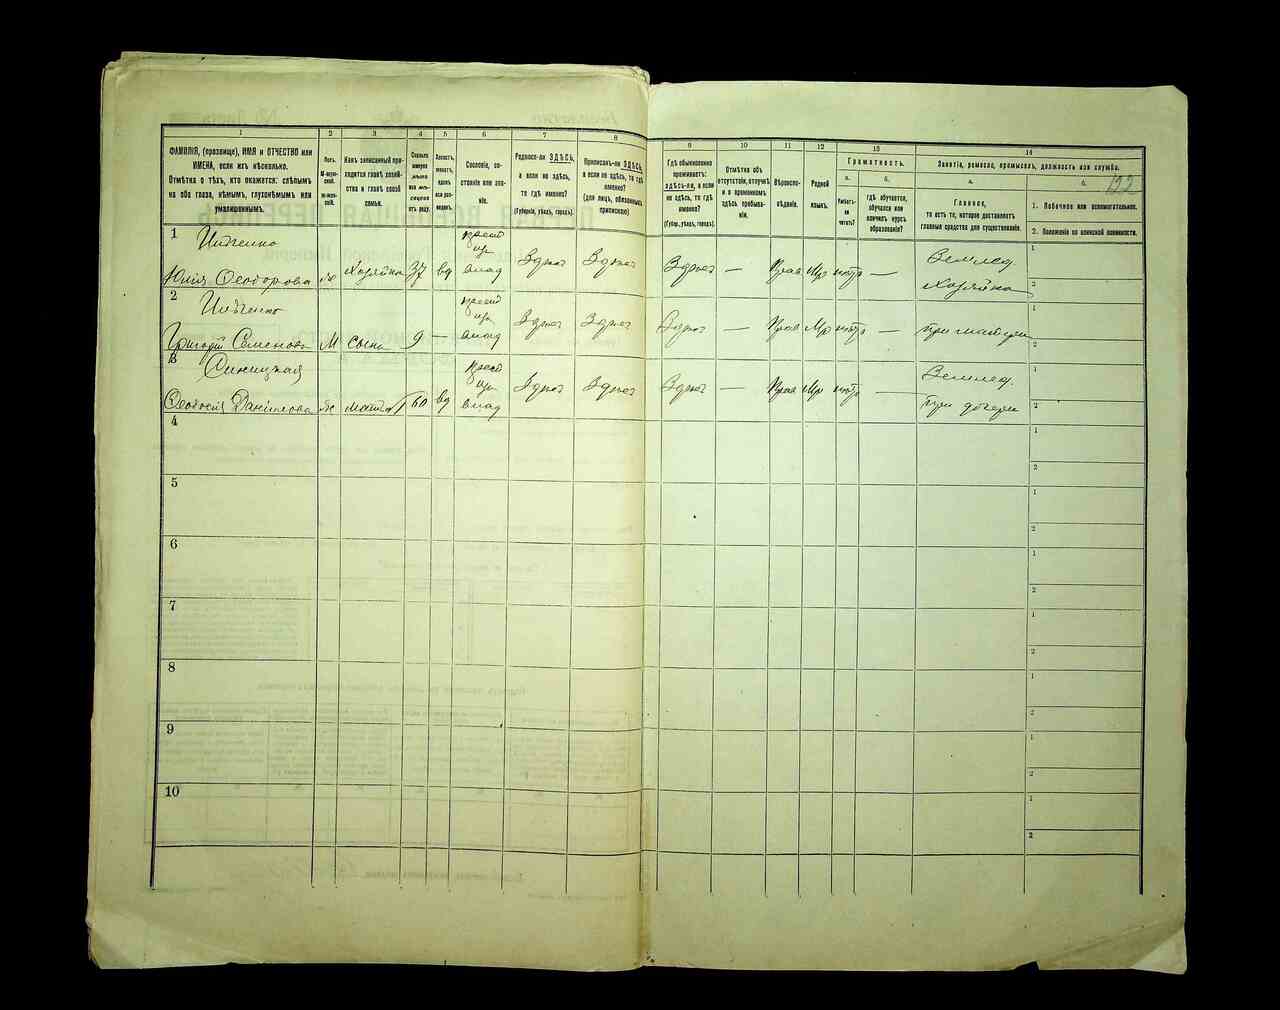 1
2
3
4
5
6
7
8
9
10
11
12
13
14
ФАМИЛІЯ, (прозвище), ИМЯ и ОТЧЕСТВО или
ИМЕНА, если ихъ нѣсколько.
Отмѣтка о тѣхъ, кто окажется: слѣпымъ
на оба глаза, нѣмымъ, глухонѣмымъ или
умалишеннымъ.
Полъ.
М-мужской.
Ж-женскій.
Какъ записанный приходится
главѣ хозяйства и главѣ своей
семьи.
Сколько
минуло
лѣтъ
или мѣсяцевъ
отъ роду.
Холостъ,
женатъ,
вдовъ
или разведенъ.
Сословіе, состояніе
или званіе.
Родился-ли ЗДѢСЬ,
а если не здѣсь,
то гдѣ именно?
(Губернія, уѣздъ, городъ).
Приписанъ-ли ЗДѢСЬ,
а если не здѣсь, то гдѣ
именно?
(Для лицъ, обязанныхъ
припискою)
Гдѣ обыкновенно
проживаетъ:
здѣсь-ли, а если
не здѣсь, то гдѣ
именно?
(Губер., уѣздъ, городъ).
Отмѣтка объ
отсутствіи, отлучкѣ
и о временномъ
здѣсь пребываніи.
Вѣроисповѣданіе.
Родной
языкъ.
Грамотность.
а.
Умѣетъ-ли
читать?
б.
гдѣ обучается,
обучался или
кончилъ курсъ
образованія?
Занятіе, ремесло, промыселъ, должность или служба.
а.
Главное,
то есть то, которое доставляетъ
главныя средства для существованія.
б.
122
1. Побочное или вспомогательное.
2. Положеніе по воинской повинности.
1
Юлія Ѳеодорова
ж
Хозяйка
37
вд
влад
Здѣсь
Здѣсь
Здѣсь
—
Прав
Мр
нѣтъ
—
Землед.
Хозяйка
1
2
2
Григорій Семеновъ
М
сынъ
9
—
влад
Здѣсь
Здѣсь
Здѣсь
—
Прав
Мр
нѣтъ
—
при матери
1
2
3
Синицкая
Ѳеодосія Данилова
ж
мать
60
вд
влад
Здѣсь
Здѣсь
Здѣсь
—
Прав
Мр
нѣтъ
—
Землед.
при дочери
1
2
4
1
2
5
1
2
6
1
2
7
1
2
8
1
2
9
1
2
10
1
2